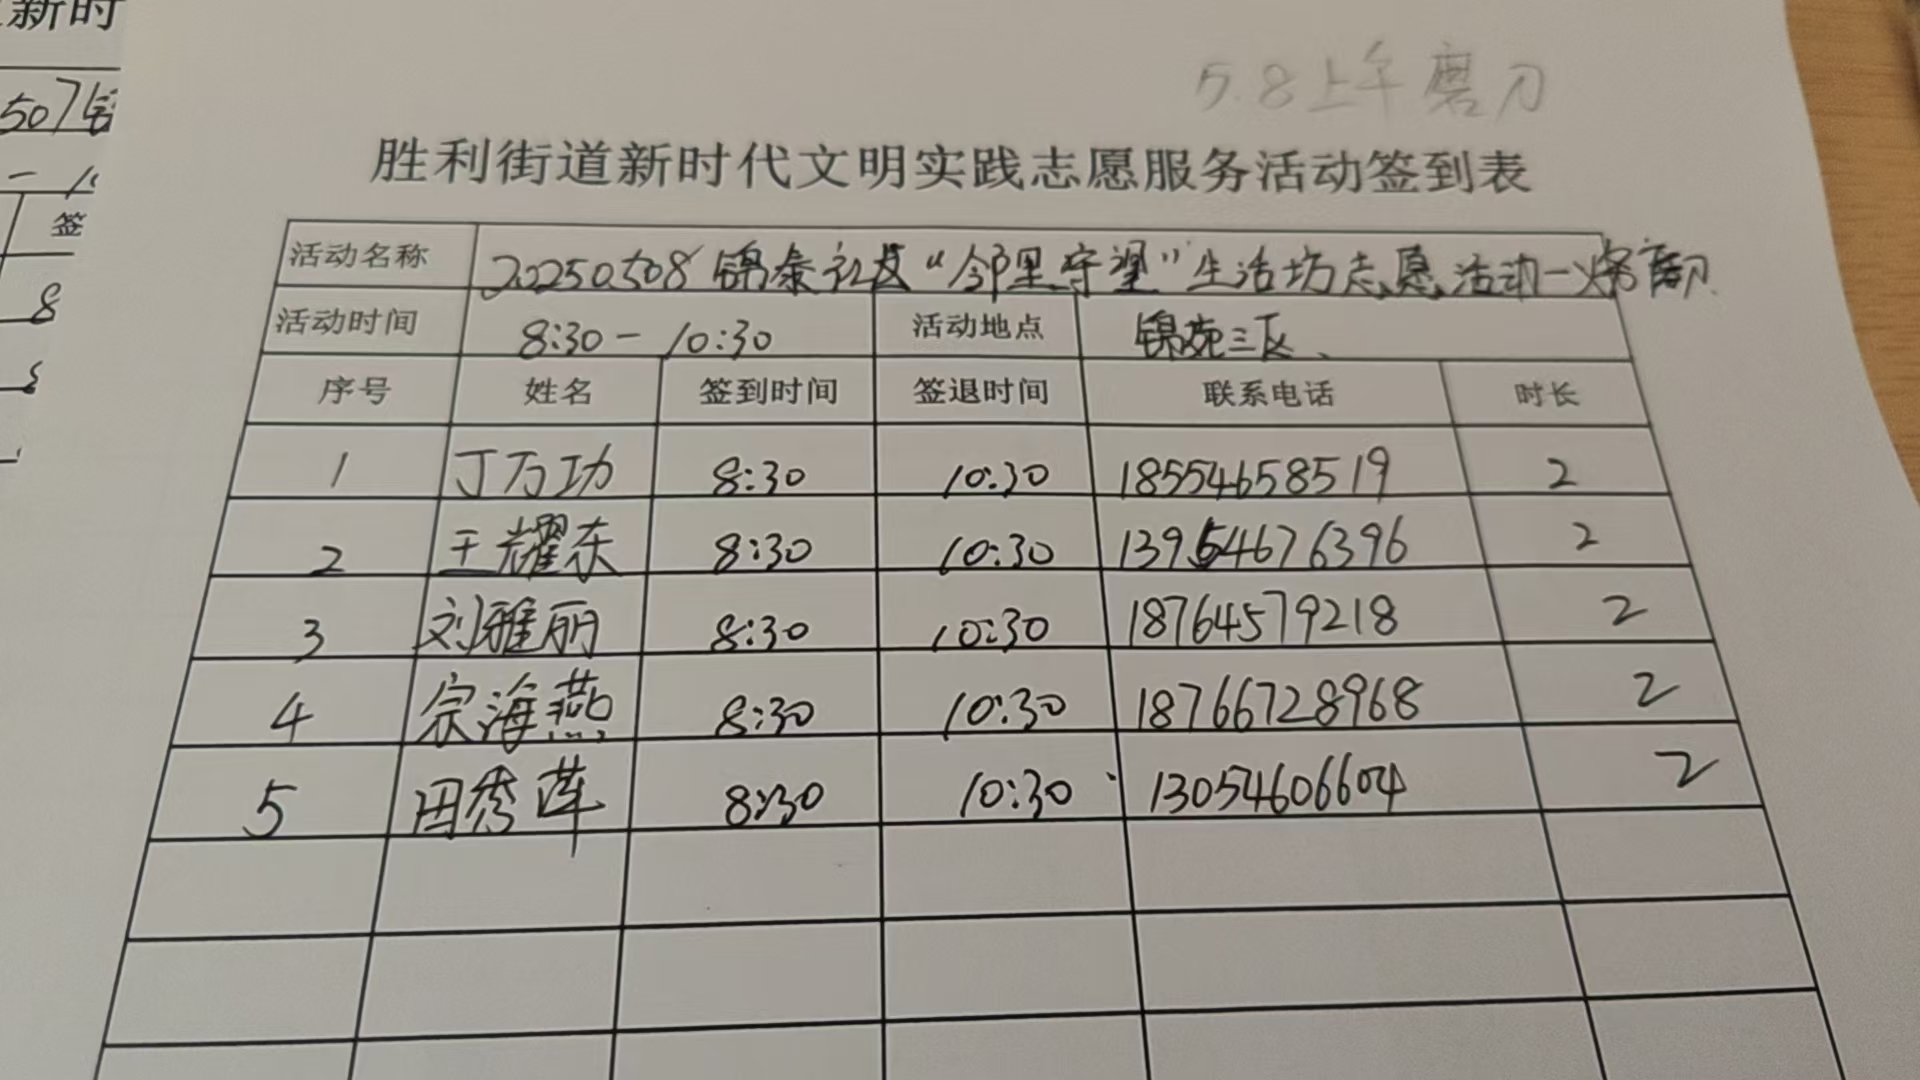 新时
507锦
签
8
5.8上午磨刀
胜利街道新时代文明实践志愿服务活动签到表
活动名称 20250508锦泰社区“邻里守望”生活坊志愿活动一
活动时间 8:30－10:30 活动地点 锦苑三区、
序号 姓名 签到时间 签退时间 联系电话 时长
1 丁万功 8:30 10:30 18554658519 2
2 王耀东 8:30 10:30 13954676396 2
3 刘雅丽 8:30 10:30 18764579218 2
4 宗海燕 8:30 10:30 18766728968 2
5 田秀莲 8:30 10:30 13054606604 2